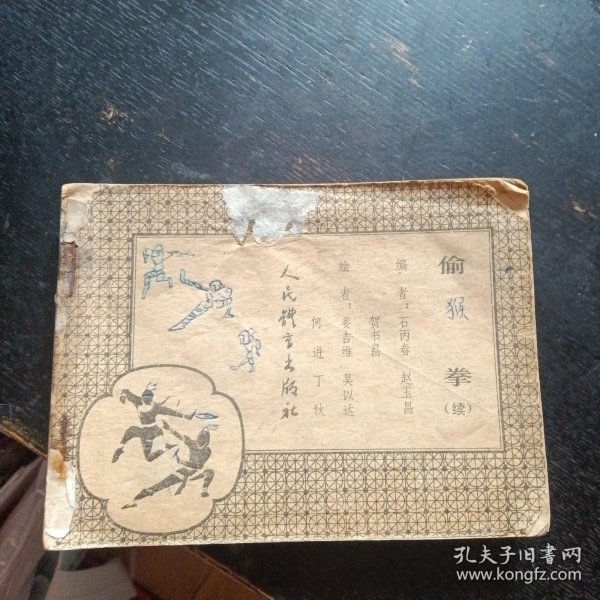 偷猴拳
(续)
编者：石丙春 赵玉昌
贺书昌
绘者：姜吉维 吴以达
何进 丁秋
人民体育出版社
孔夫子旧书网
www.kongfz.com